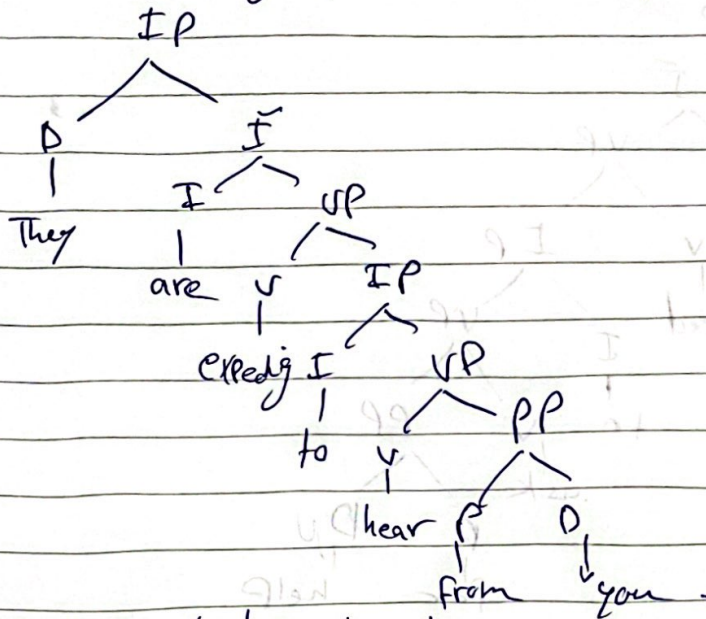 IP
D Ī
I VP
They
are v IP
expectig I VP
to v PP
hear P D
from you.